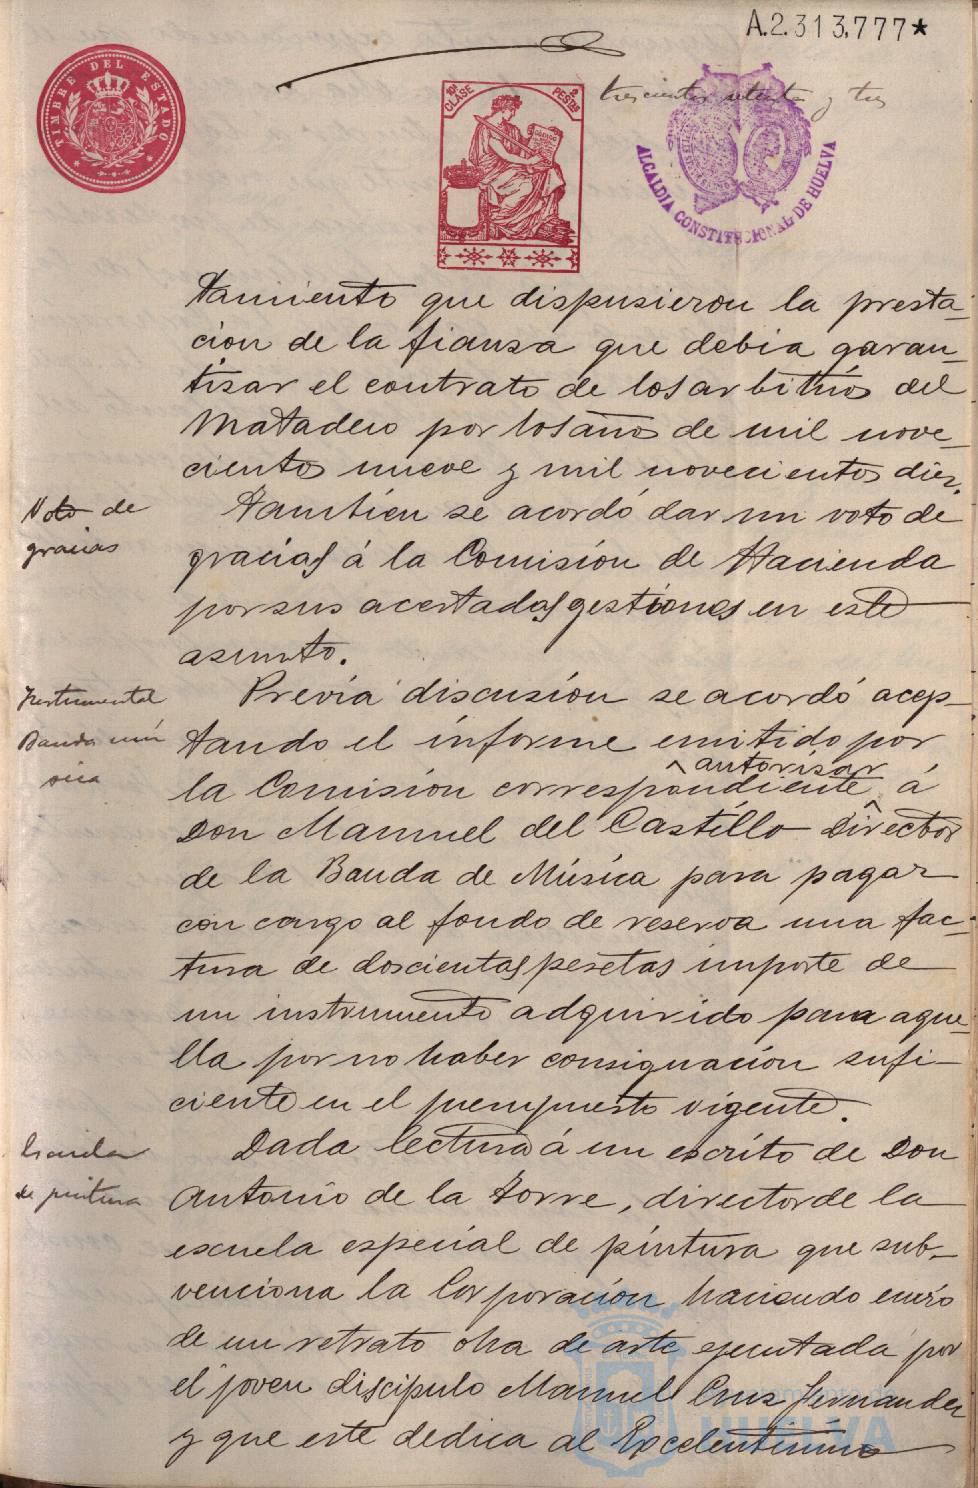 A.2.313.777★
TIMBRE DEL ESTADO
10ª CLASE
2 PESTAS
trescientos setenta y tres
ALCALDIA CONSTITUCIONAL DE HUELVA
tamiento que dispusieron la presta-
cion de la fianza que debia garan-
tizar el contrato de los arbitrios del
Matadero por los años de mil nove-
cientos nueve y mil novecientos diez.
Voto de
gracias
Tambien se acordó dar un voto de
gracias á la Comisión de Hacienda
por sus acertadas gestiones en este
asunto.
Instrumental
Banda mú
sica
Previa discusión se acordó acep-
tando el informe emitido por
la Comisión correspondiente autorisar á
Don Manuel del Castillo Director
de la Banda de Música para pagar
con cargo al fondo de reserva una fac-
tura de doscientas pesetas importe de
un instrumento adquirido para aque-
lla por no haber consignación sufi-
ciente en el presupuesto vigente.
Escuela
de pintura
Dada lectura á un escrito de Don
Antonio de la Torre, director de la
escuela especial de pintura que sub-
venciona la Corporación haciendo envio
de un retrato obra de arte ejecutada por
el joven discipulo Manuel Cruz Fernandez
y que este dedica al Excelentisimo
Ayuntamiento de
HUELVA